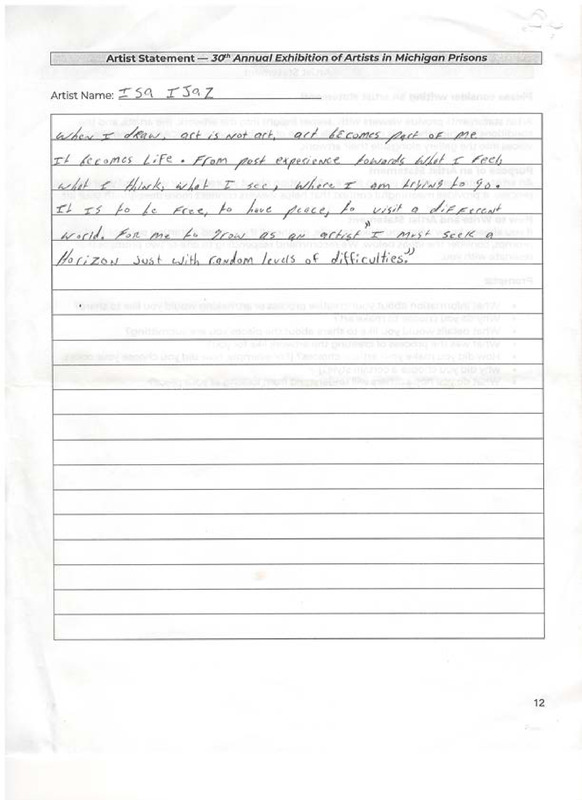 Artist Statement — 30th Annual Exhibition of Artists in Michigan Prisons
Artist Name: Isa Ijaz
When I draw, art is not art, art becomes part of me
It becomes Life. From past experience towards what I feel,
what I think, what I see, where I am trying to go.
It Is to be free, to have peace, to visit a different
world. For me to grow as an artist "I must seek a
Horizon just with random levels of difficulties."
12